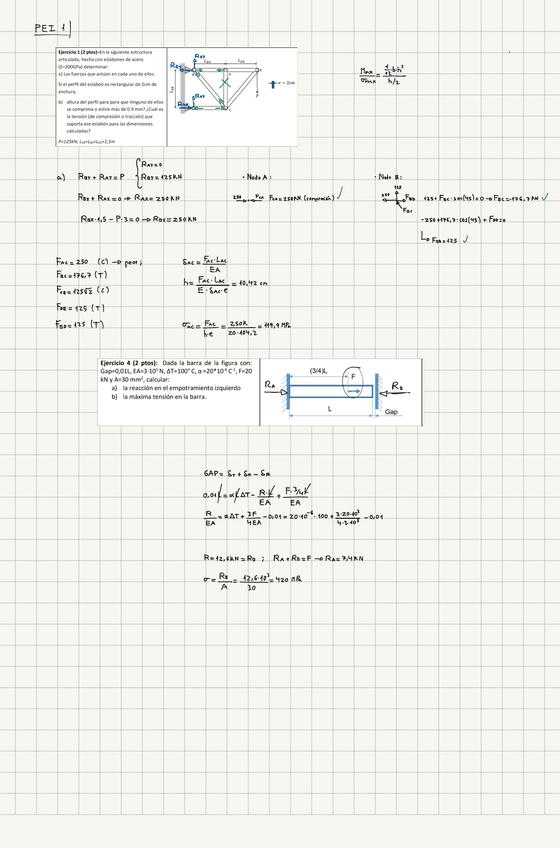 PEI 1
Ejercicio 1 (2 ptos)-En la siguiente estructura
articulada, hecha con eslabones de acero
(E=200GPa) determinar:
a) Las fuerzas que actúan en cada uno de ellos.
Si el perfil del eslabón es rectangular de 2cm de
anchura,
b) altura del perfil para que ninguno de ellos
se comprima o estire más de 0.9 mm? ¿Cuál es
la tensión (de compresión o tracción) que
soporta ese eslabón para las dimensiones
calculadas?
a) RBY + RAY = P { RAY=0
RBY=125KN
RBX + RAX = 0 → RAX = 250KN
RBX·1,5 - P·3=0 → RBX=250KN
· Nodo A:
FCA=250KN (compresión) ✓
· Nodo B:
125+FBC·sen(45)=0→FBC=-176,7 KN ✓
-250+176,7·cos(45)+FBD=0
↳ FBD=125 ✓
FAC=250 (C) → peor;
FBC=176,7 (T)
FCE=125√2 (C)
FDE=125 (T)
FBD=125 (T)
δAC = FAC·LAC / EA
h = FAC·LAC / E·δAC·e = 10,42 cm
σAC = FAC / h·e = 250K / 20·104,2 = 119,9 MPa
Ejercicio 4 (2 ptos): Dada la barra de la figura con:
Gap=0,01L, EA=3·10⁵ N, ΔT=100° C, α=20*10⁻⁶ C⁻¹, F=20
kN y A=30 mm², calcular:
a) la reacción en el empotramiento izquierdo
b) la máxima tensión en la barra.
(3/4)L
F
RA
RB
L
Gap
0,01L = αLΔT - R·L/EA + F·3/4L/EA
R/EA = αΔT + 3F/4EA - 0,01 = 20·10⁻⁶·100 + 3·20·10³/4·3·10⁵ - 0,01
R=12,6KN=RB ; RA+RB=F → RA=7,4KN
σ = RB/A = 12,6·10³/30 = 420 MPa